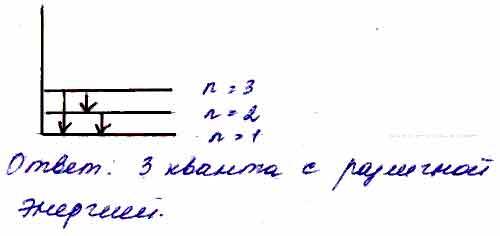 n = 3
n = 2
n = 1
Ответ: 3 кванта с различной
энергией.